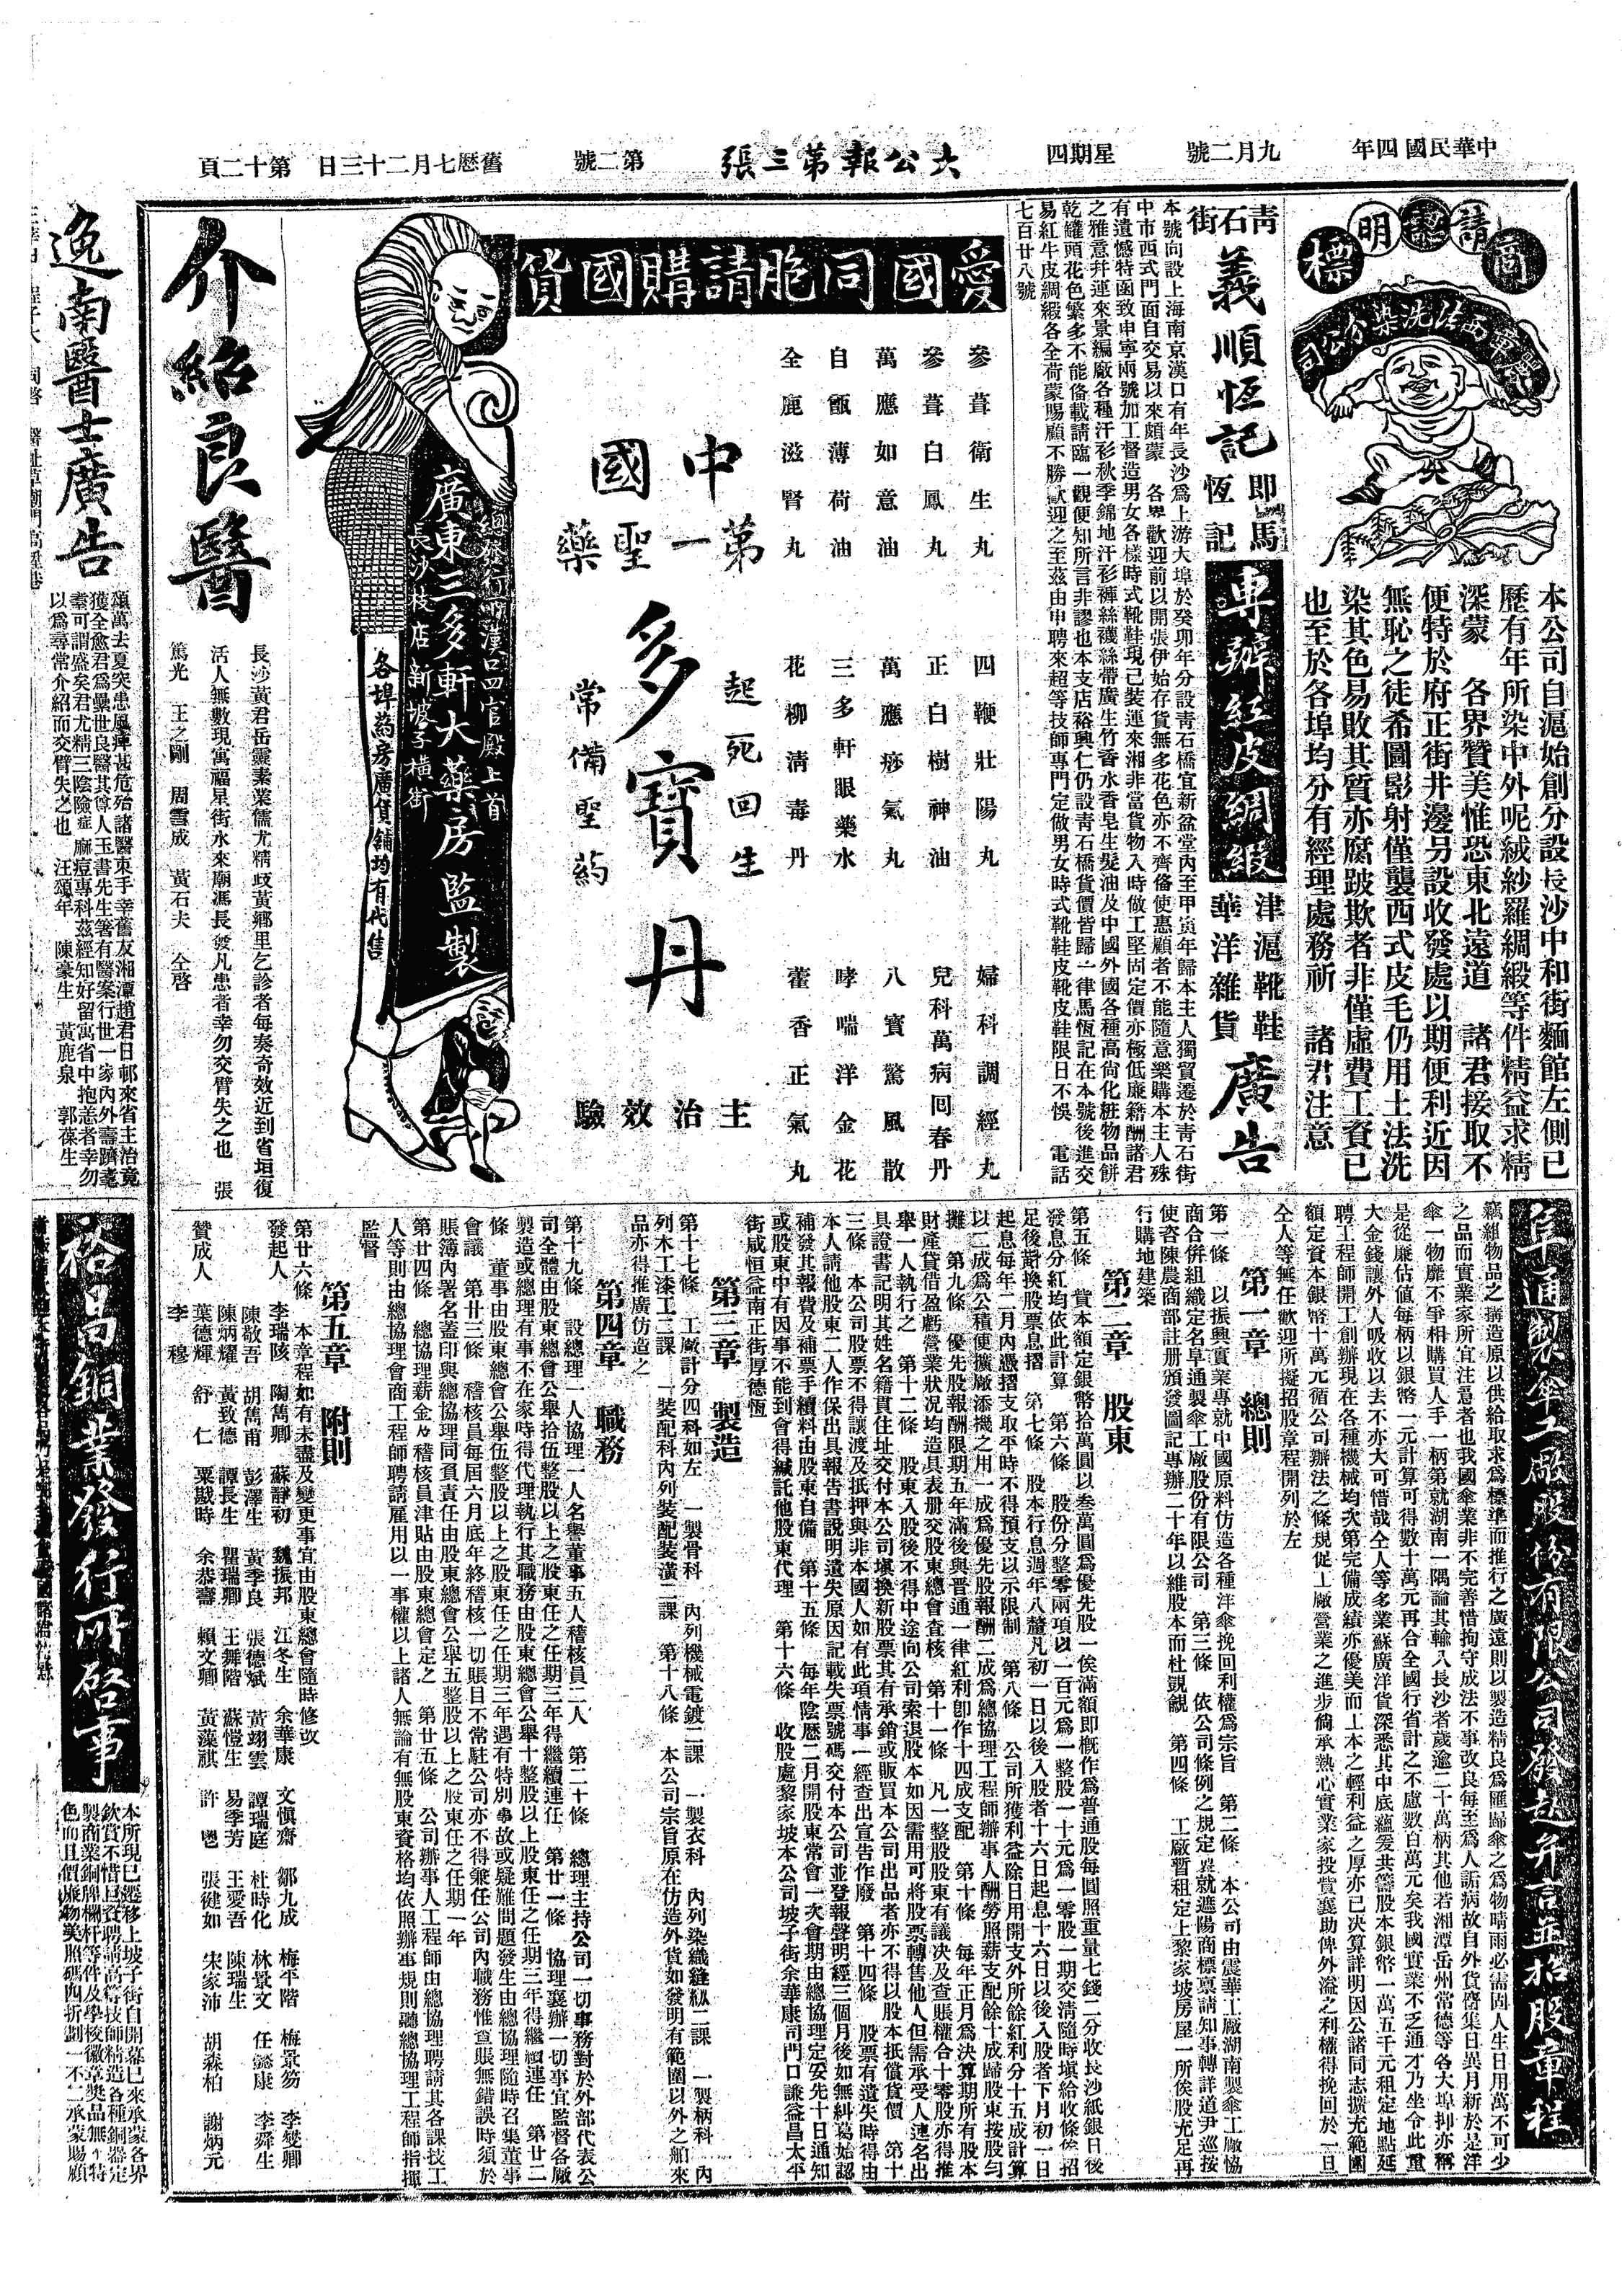 中華民國四年
九月二號
星期四
大公報第三張
第二號
舊歷七月二十三日
第十二頁
請認明
商標
西法洗染分公司
本公司自滬始創分設長沙中和街麵館左側已
歷有年所染中外呢絨紗羅綢緞等件精益求精
深蒙　各界贊美惟恐東北遠道　諸君接取不
便特於府正街井邊另設收發處以期便利近因
無恥之徒希圖影射僅襲西式皮毛仍用土法洗
染其色易敗其質亦腐跛欺者非僅虛費工資已
也至於各埠均分有經理處務祈　諸君注意
青石街
義順恆記
即馬恆記
專辦紅皮綢緞
津滬靴鞋
華洋雜貨
廣告
本號向設上海南京漢口有年長沙爲上游大埠於癸卯年分設靑石橋宜新盆堂內至甲寅年歸本主人獨貿遷於靑石街
中市西式門面自交易以來頗蒙　各界歡迎前以開張伊始存貨無多花色亦不齊俻使惠顧者不能隨意樂購本主人殊
有遺憾特函致申寧兩號加工督造男女各樣時式靴鞋現已裝運來湘非當貨物入時做工堅固定價亦極低廉藉酬諸君
之雅意幷運來景綸廠各種汗衫秋季錦地汗衫褲絲襪絲帶廣生竹香水香皂生髮油及中國外國各種高尙化粧物品餅
乾罐頭花色繁多不能俻載請臨一觀便知所言非謬也本支店裕興仁仍設靑石橋貨價皆歸一律馬恆記在本號後進交
易紅牛皮綢緞各全荷蒙賜顧不勝歡迎之至茲由申聘來超等技師專門定做男女時式靴鞋皮靴皮鞋限日不悞　電話
七百廿八號
愛國同胞請購國貨
參茸衛生丸
參茸白鳳丸
萬應如意油
自甑薄荷油
全鹿滋腎丸
四鞭壯陽丸
正白樹神油
萬應痧氣丸
三多軒眼藥水
花柳清毒丹
婦科調經丸
兒科萬病回春丹
八寶驚風散
哮喘洋金花
藿香正氣丸
中國
第一聖藥
多寶丹
起死回生
常備聖药
主治效驗
漢口四官殿上首
廣東三多軒大藥房監製
長沙枝店新坡子橫街
各埠葯房廣貨舖均有代售
介紹良醫
長沙黃君岳靈素業儒尤精歧黃鄉里乞診者每奏奇效近到省垣復
活人無數現寓福星街水來廟馮長發凡患者幸勿交臂失之也　張
篤光　王之剛　周雪成　黃石夫　仝啓
逸南醫士廣告
頌萬去夏突患風痺甚危殆諸醫束手幸舊友湘潭趙君日邨來省主治竟
獲全愈君爲曩世良醫其尊人玉書先生箸有醫案行世一家內外壽躋耄
耋可謂盛矣君尤精三陰險症麻痘專科茲經知好留寓省中抱恙者幸勿
以爲尋常介紹而交臂失之也　汪頌年　陳豪生　黃鹿泉　郭葆生
阜通製傘工廠股份有限公司發起幷信並招股章程
竊維物品之構造原以供給取求爲標準而推行之廣遠則以製造精良爲匯歸傘之爲物晴雨必需固人生日用萬不可少
之品而實業家所宜注意者也我國傘業非不完善惜拘守成法不事改良每至爲人詬病故自外貨啓集日異月新於是洋
傘一物靡不爭相購買人手一柄第就湖南一隅論其輸入長沙者歲逾二十萬柄其他若湘潭岳州常德等各大埠抑亦稱
是從廉估值每柄以銀幣一元計算可得數十萬元再合全國行省計之不慮數百萬元矣我國實業不乏通才乃坐令此重
大金錢讓外人吸收以去不亦大可惜哉仝人等多業蘇廣洋貨深悉其中底蘊爰共籌股本銀幣一萬五千元租定地點延
聘工程師開工創辦現在各種機械均次第完備成績亦優美而工本之輕利益之厚亦已決算詳明因公諸同志擴充範圍
額定資本銀幣十萬元循公司辦法之條規促工廠營業之進步倘承熱心實業家投貲襄助俾外溢之利權得挽回於一旦
仝人等無任歡迎所擬招股章程開列於左
第一章　總則
第一條　以振興實業專就中國原料仿造各種洋傘挽回利權爲宗旨　第二條　本公司由震華工廠湖南製傘工廠協
商合併組織定名阜通製傘工廠股份有限公司　第三條　依公司條例之規定呈就遮陽商標禀請知事轉詳道尹巡按
使咨陳農商部註册頒發圖記專辦二十年以維股本而杜覬覦　第四條　工廠暫租定上黎家坡房屋一所俟股充足再
行購地建築
第二章　股東
第五條　貲本額定銀幣拾萬圓以叁萬圓爲優先股一俟滿額即概作爲普通股每圓照重量七錢二分收長沙紙銀日後
發息分紅均依此計算　第六條　股份分整零兩項以一百元爲一整股一十元爲一零股一期交清隨時塡給收條俟招
足後再換股票息摺　第七條　股本行息週年八釐凡初一日以後入股者十六日起息十六日以後入股者下月初一日
起息每年二月內憑摺支取平時不得預支以示限制　第八條　公司所獲利益除日用開支外所餘紅利分十五成計算
以二成爲公積便擴廠添機之用一成爲優先股報酬二成爲總協理工程師辦事人酬勞照薪支配餘十成歸股東按股勻
攤　第九條　優先股報酬限期五年滿後與普通一律紅利卽作十四成支配　第十條　每年正月爲決算期所有股本
財產貸借盈虧營業狀況均造具表册交股東總會查核　第十一條　凡一整股股東有議決及查賬權合十零股亦得推
舉一人執行之　第十二條　股東入股後不得中途向公司索退股本如因需用可將股票轉售他人但需承受人連名出
具證書記明其姓名籍貫住址交付本公司塡換新股票其有承銷或販買本公司出品者亦不得以股本抵償貨價　第十
三條　本公司股票不得讓渡及抵押與非本國人如有此項情事一經查出宣告作廢　第十四條　股票有遺失時得由
本人請他股東二人作保出具報告書說明遺失原因記載失票號碼交付本公司並登報聲明經三個月後如無糾葛始認
補發其報費及補票手續料由股東自備　第十五條　每年陰歷二月開股東常會一次會期由總協理定妥先十日通知
或股東中有因事不能到會得緘託他股東代理　第十六條　收股處黎家坡本公司坡子街余華康司門口謙益昌太平
街咸恒益南正街厚德恆
第三章　製造
第十七條　工廠計分四科如左　一製骨科　內列機械電鍍二課　一製衣科　內列染織縫紉二課　一製柄科　內
列木工漆工二課　一裝配科內列裝配裝潢二課　第十八條　本公司宗旨原在仿造外貨如發明有範圍以外之舶來
品亦得推廣仿造之
第四章　職務
第十九條　設總理一人協理一人名譽董事五人稽核員二人　第二十條　總理主持公司一切事務對於外部代表公
司全體由股東總會公舉拾伍整股以上之股東任之任期三年得繼續連任　第廿一條　協理襄辦一切事宜監督各廠
製造或總理有事不在家時得代理執行其職務由股東總會公舉十整股以上股東任之任期三年得繼續連任　第廿二
條　董事由股東總會公舉伍整股以上之股東任之任期三年遇有特別事故或疑難問題發生由總協理隨時召集董事
會議　第廿三條　稽核員每屆六月底年終稽核一切賬目不常駐公司亦不得兼任公司內職務惟查賬無錯誤時須於
賬簿內署名蓋印與總協理同負責任由股東總會公舉五整股以上之股東任之任期一年
第廿四條　總協理薪金及稽核員津貼由股東總會定之　第廿五條　公司辦事人工程師由總協理聘請其各課技工
人等則由總協理會商工程師聘請雇用以一事權以上諸人無論有無股東資格均依照辦事規則聽總協理工程師指揮
監督
第五章　附則
第廿六條　本章程如有未盡及變更事宜由股東總會隨時修改
發起人　李瑞陔　陶雋卿　蘇靜初　魏振邦　江冬生　余華康　文愼齋　鄒九成　梅平階　梅景笏　李燮卿
陳敬吾　胡雋甫　彭澤生　黃季良　張德斌　黃翊雲　譚瑞庭　杜時化　林景文　任懿康　李舜生
贊成人　陳炳耀　黃致德　譚長生　瞿瑞卿　王舞階　蘇愷生　易季芳　王愛吾　陳瑞生
葉德輝　舒仁　粟戡時　余恭壽　賴文卿　黃藻祺　許　張健如　宋家沛　胡森柏　謝炳元
李穆
裕昌銅業發行所啓事
本所現已遷移上坡子街自開幕已來承蒙各界
欽賞不惜巨資聘請高等技師精造各種銅器定
製商業銅牌欄杆等件及學校徽章獎品無不特
色而且價廉物美照碼四折劃一不二承蒙賜顧